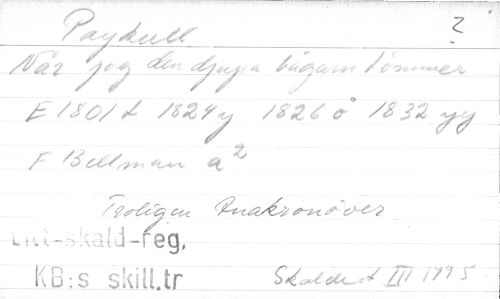 Paykull ?
När jag den djupa bägarn tömmer
E 1801 t 1824 y 1826 ö 1832 yy
F Bellman a²
Troligen Anakronöver
Litt-skald-reg.
KB:s skill.tr
Skaldest III 1795